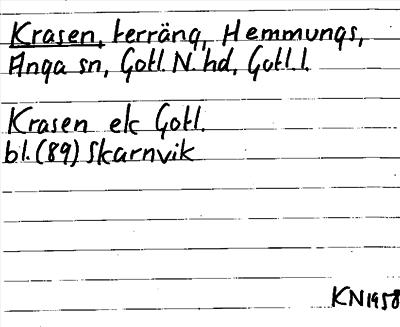 Krasen, terräng, Hemmungs,
Anga sn, Gotl. N. hd, Gotl. l.
Krasen ek Gotl.
bl. (89) Skarnvik
KN 1958